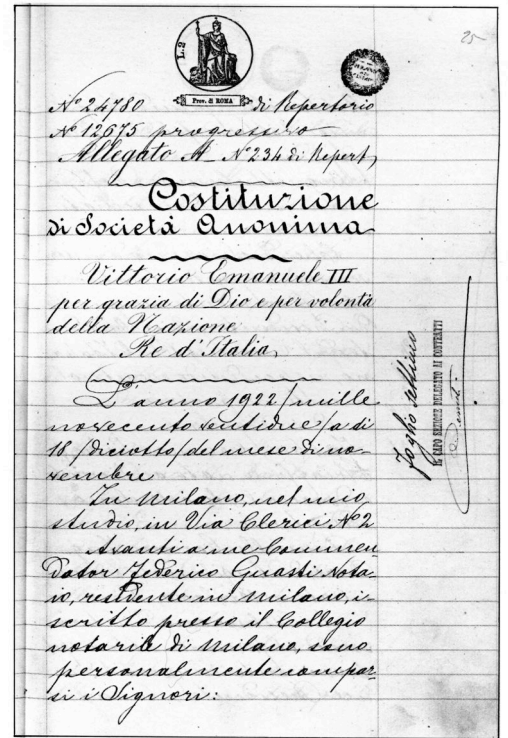 25
L. 2
Prov. di ROMA
Nº 24780 di Repertorio
Nº 12675 progressivo
Allegato A Nº 234 di Repert.
Costituzione
di Società Anonima
Vittorio Emanuele III
per grazia di Dio e per volontà
della Nazione
Re d'Italia,
L'anno 1922/mille
novecento ventidue/a dì
18/diciotto/del mese di no-
vembre
In Milano, nel mio
studio, in Via Clerici, Nº 2
Avanti a me Commen
dator Federico Guasti Nota-
io, residente in Milano, i-
scritto presso il Collegio
notarile di Milano, sono
personalmente compar-
si i Signori:
foglio settimo
IL CAPO SEZIONE DELEGATO AI CONTRATTI